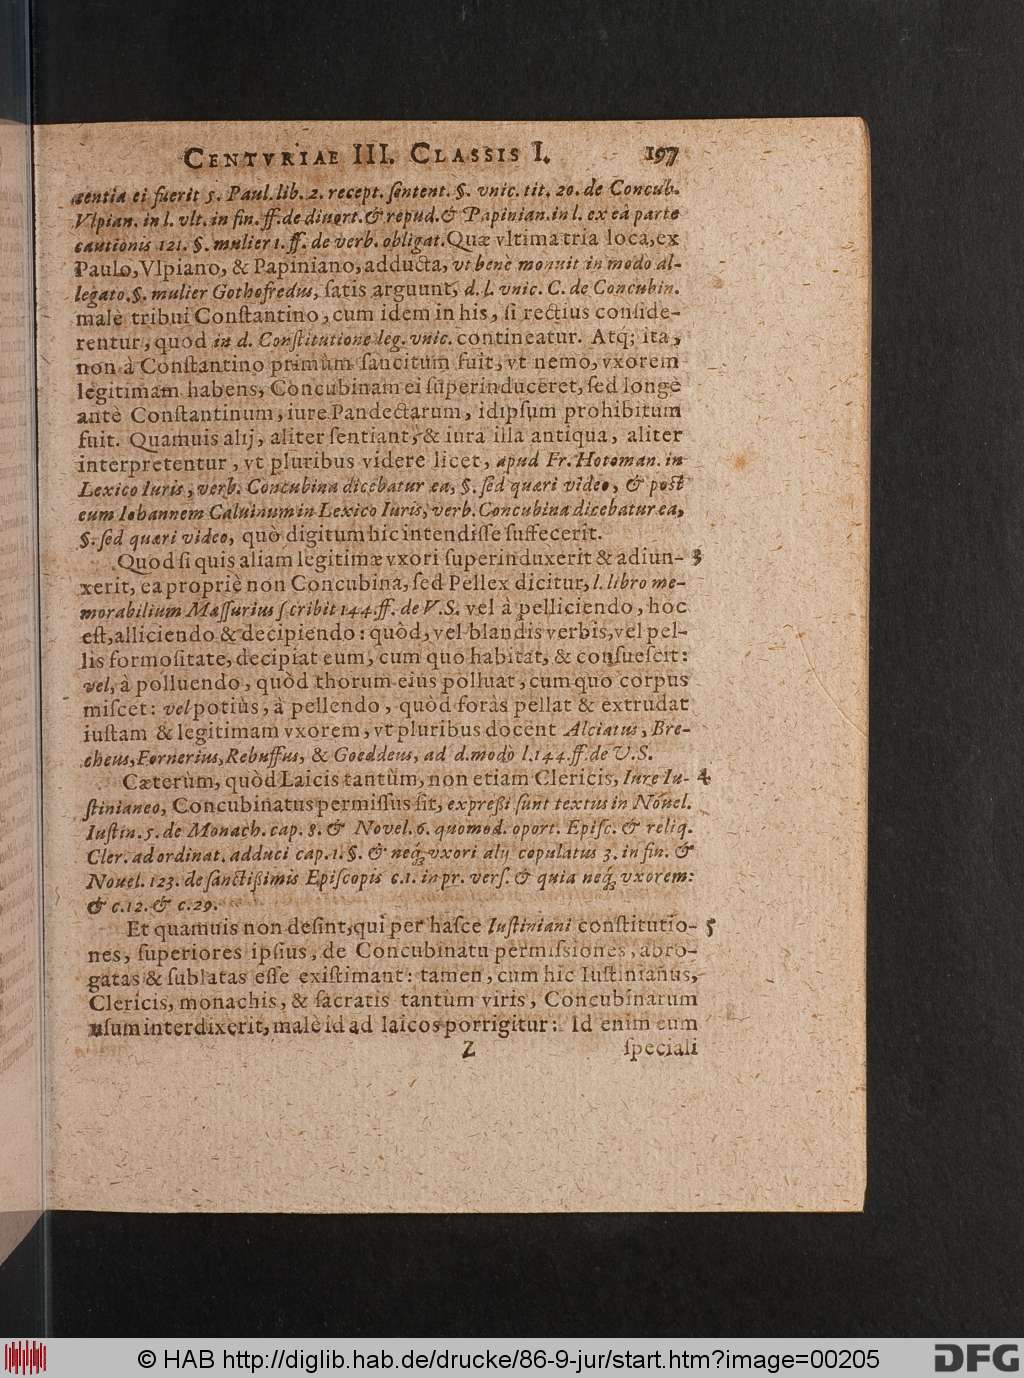 CENTVRIAE III. CLASSIS I. 197
æentia ei fuerit 5. Paul. lib. 2. recept. ſentent. §. vnic. tit. 20. de Concub.
Vlpian. in l. vlt. in fin. ff. de diuort. & repud. & Papinian. in l. ex eà parte
cautionis 121. §. mulier 1. ff. de verb. obligat. Quæ vltima tria loca, ex
Paulo, Vlpiano, & Papiniano, adducta, vt benè monuit in modo al-
legato. §. mulier Gothofredus, ſatis arguunt, d. l. vnic. C. de Concubin.
malè tribui Conſtantino, cum idem in his, ſi rectius conſide-
rentur, quod in d. Conſtitutione leg. vnic. contineatur. Atq; ita,
non à Conſtantino primùm ſancitum fuit, vt nemo, vxorem
legitimam habens, Concubinam ei ſuperinduceret, ſed longè
antè Conſtantinum, iure Pandectarum, idipſum prohibitum
fuit. Quamuis alij, aliter ſentiant, & iura illa antiqua, aliter
interpretentur, vt pluribus videre licet, apud Fr. Hotoman. in
Lexico Iuris, verb. Concubina dicebatur ea, §. ſed quæri video, & poſt
eum Iohannem Caluinum in Lexico Iuris, verb. Concubina dicebatur ea,
§. ſed quæri video, quò digitum hic intendiſſe ſuffecerit.
Quod ſi quis aliam legitimæ vxori ſuperinduxerit & adiun- 3
xerit, ea propriè non Concubina, ſed Pellex dicitur, l. libro me-
morabilium Maſſurius ſcribit 144. ff. de V. S. vel à pelliciendo, hoc
eſt, alliciendo & decipiendo: quòd, vel blandis verbis, vel pel-
lis formoſitate, decipiat eum, cum quo habitat, & conſueſcit:
vel, à polluendo, quòd thorum eius polluat, cum quo corpus
miſcet: vel potiùs, à pellendo, quòd foràs pellat & extrudat
iuſtam & legitimam vxorem, vt pluribus docent Alciatus, Bre-
cheus, Fornerius, Rebuffus, & Goeddeus, ad d. modò l. 144. ff. de V. S.
Cæterùm, quòd Laicis tantùm, non etiam Clericis, Iure Iu- 4
ſtinianeo, Concubinatus permiſſus ſit, expreßi ſunt textus in Nouel.
Iuſtin. 5. de Monach. cap. 8. & Novel. 6. quomod. oport. Epiſc. & reliq.
Cler. ad ordinat. adduci cap. 1. §. & neq; vxori alij copulatus 3. in fin. &
Nouel. 123. de ſanctißimis Epiſcopis c. 1. in pr. verſ. & quia neq; vxorem:
& c. 12. & c. 29.
Et quamuis non deſint, qui per haſce Iuſtiniani conſtitutio- 5
nes, ſuperiores ipſius, de Concubinatu permiſsiones, abro-
gatas & ſublatas eſſe exiſtimant: tamen, cum hic Iuſtinianus,
Clericis, monachis, & ſacratis tantùm viris, Concubinarum
uſum interdixerit, malè id ad laicos porrigitur: Id enim eum
Z ſpeciali
© HAB http://diglib.hab.de/drucke/86-9-jur/start.htm?image=00205 DFG